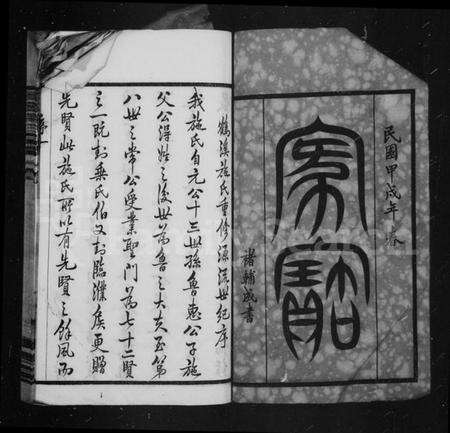 民國甲戌年春
家譜
褚輔成書
鶴溪施氏重修源流世紀序
我施氏自元公十三世孫魯惠公子施
父公得姓之後世爲魯之大夫至第
八世之常公受業聖門爲七十二賢
之一既封乘氏伯又封臨濮侯更贈
先賢此施氏所以有先賢之餘風而
序一